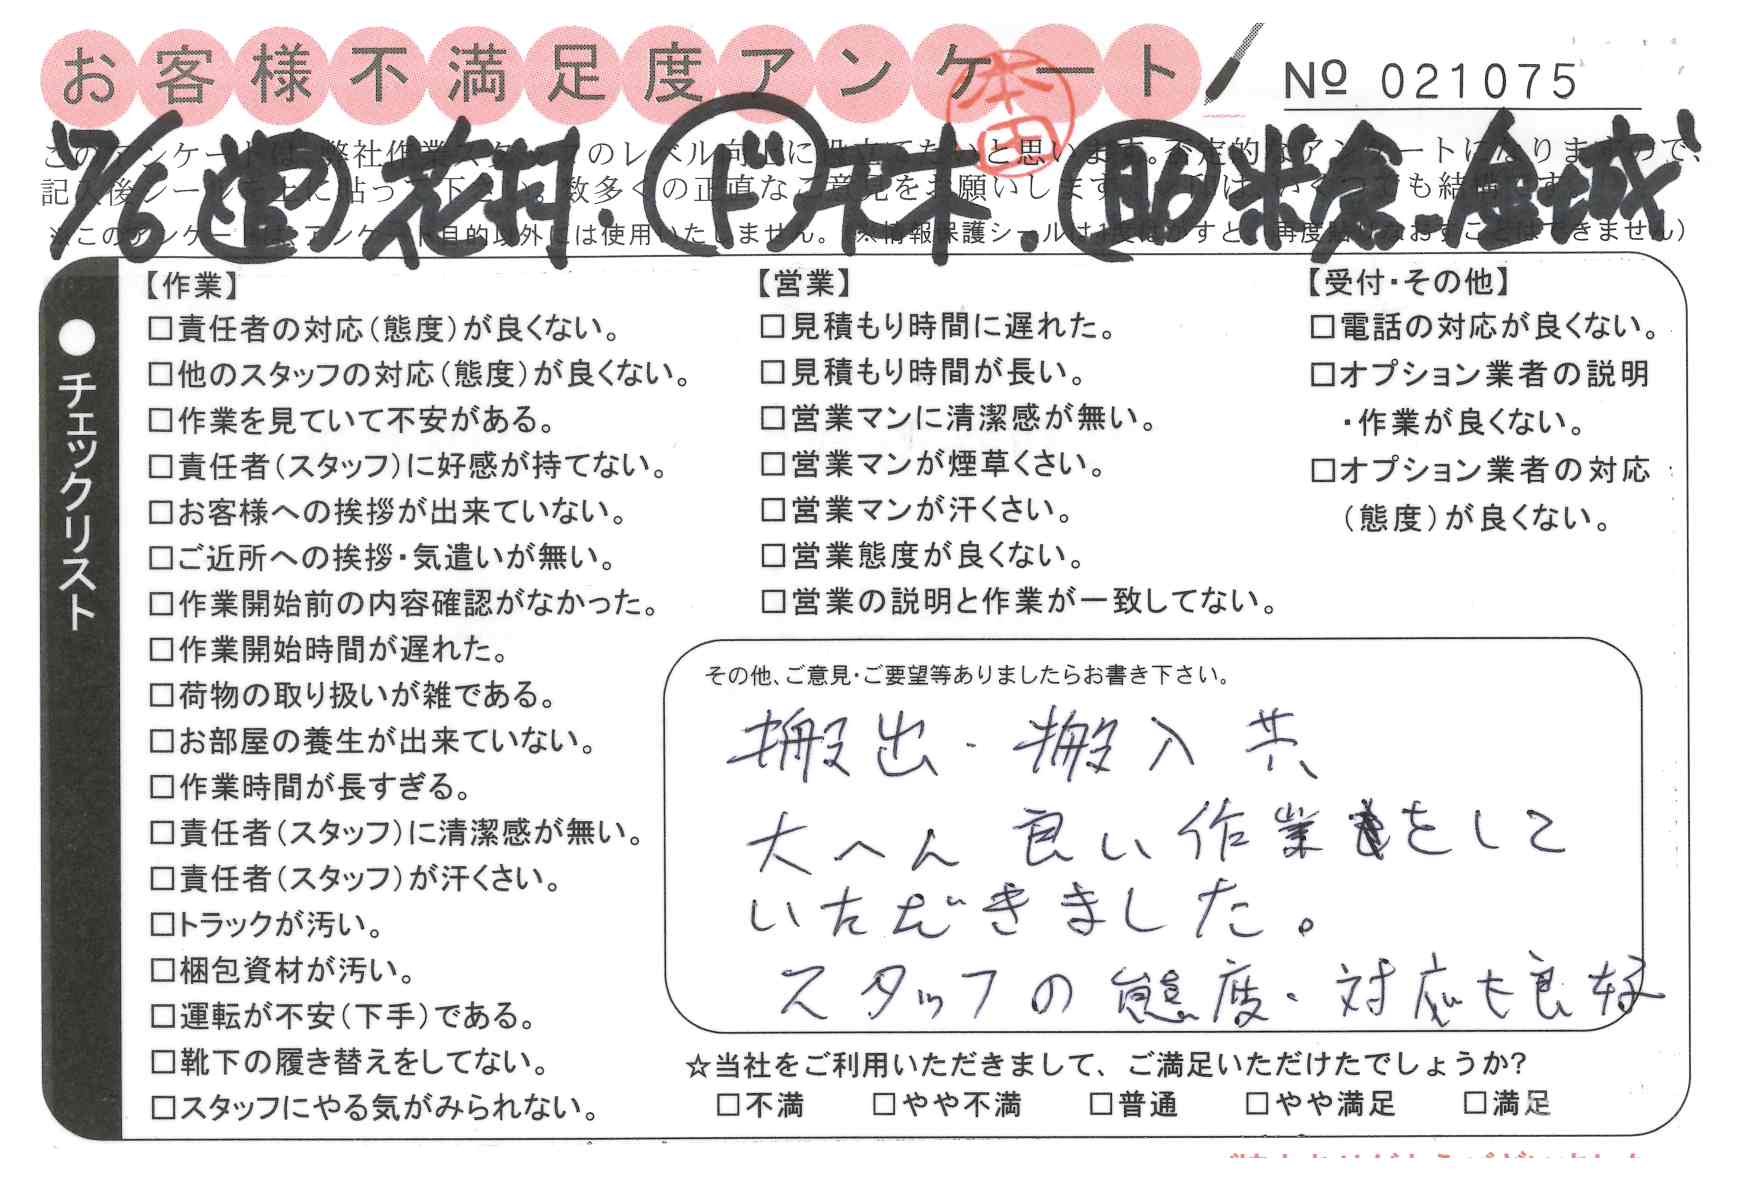 お客様不満足度アンケート
本田
№ 021075
このアンケートは、弊社作業スタッフのレベル向上に役立てたいと思います。否定的なアンケートになりますので、
記入後シールを上に貼って下さい。数多くの正直なご意見をお願いします。
※このアンケートは、アンケート目的以外には使用いたしません。(※情報保護シールは1度はがすと、再度貼りなおすことはできません)
花村・(ド) 助 米倉・金城
チェックリスト
【作業】
□責任者の対応(態度)が良くない。
□他のスタッフの対応(態度)が良くない。
□作業を見ていて不安がある。
□責任者(スタッフ)に好感が持てない。
□お客様への挨拶が出来ていない。
□ご近所への挨拶・気遣いが無い。
□作業開始前の内容確認がなかった。
□作業開始時間が遅れた。
□荷物の取り扱いが雑である。
□お部屋の養生が出来ていない。
□作業時間が長すぎる。
□責任者(スタッフ)に清潔感が無い。
□責任者(スタッフ)が汗くさい。
□トラックが汚い。
□梱包資材が汚い。
□運転が不安(下手)である。
□靴下の履き替えをしてない。
□スタッフにやる気がみられない。
【営業】
□見積もり時間に遅れた。
□見積もり時間が長い。
□営業マンに清潔感が無い。
□営業マンが煙草くさい。
□営業マンが汗くさい。
□営業態度が良くない。
□営業の説明と作業が一致してない。
【受付・その他】
□電話の対応が良くない。
□オプション業者の説明
・作業が良くない。
□オプション業者の対応
(態度)が良くない。
その他、ご意見・ご要望等ありましたらお書き下さい。
搬出・搬入共
大へん良い作業をして
いただきました。
スタッフの態度・対応も良好
☆当社をご利用いただきまして、ご満足いただけたでしょうか?
□不満 □やや不満 □普通 □やや満足 □満足